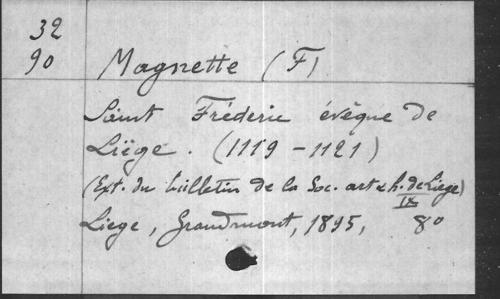 32
90 Magnette (F)
Saint Fréderic évêque de
Liège. (1119-1121)
(Ext. du bulletin de la Soc. art & h. de Liege)
IX
Liege, Grandmont, 1895, 8º